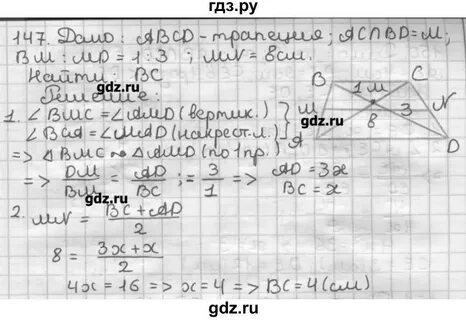 гдз.ру
147. Дано: ABCD - трапеция; AC∩BD=M;
BM : MD = 1:3 ; MN = 8см.
Найти: BC
Решение:
1. ∠BMC = ∠AMD (вертик.)
∠BCA = ∠MAD (накрест.л.)
=> △BMC ~ △AMD (по 1 пр.)
=> DM/BM = AD/BC ; = 3/1 => AD = 3x
BC = x
B
C
1
M
M
N
8
3
A
D
2. MN = (BC + AD)/2
8 = (3x + x)/2
4x = 16 => x = 4 => BC = 4 (см)
gdz.ru
gdz.ru
gdz.ru
gdz.ru
gdz.ru
gdz.ru
gdz.ru